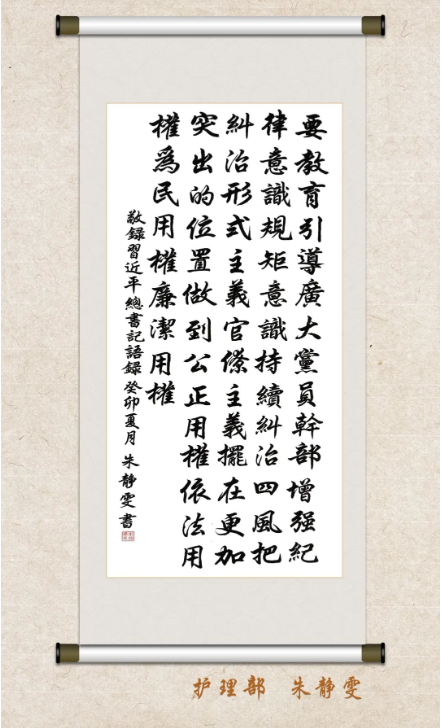 要教育引導廣大黨員幹部增强紀
律意識規矩意識持續糾治四風把
糾治形式主義官僚主義擺在更加
突出的位置做到公正用權依法用
權爲民用權廉潔用權
敬錄習近平總書記語錄 癸卯夏月 朱靜雯書
护理部 朱静雯